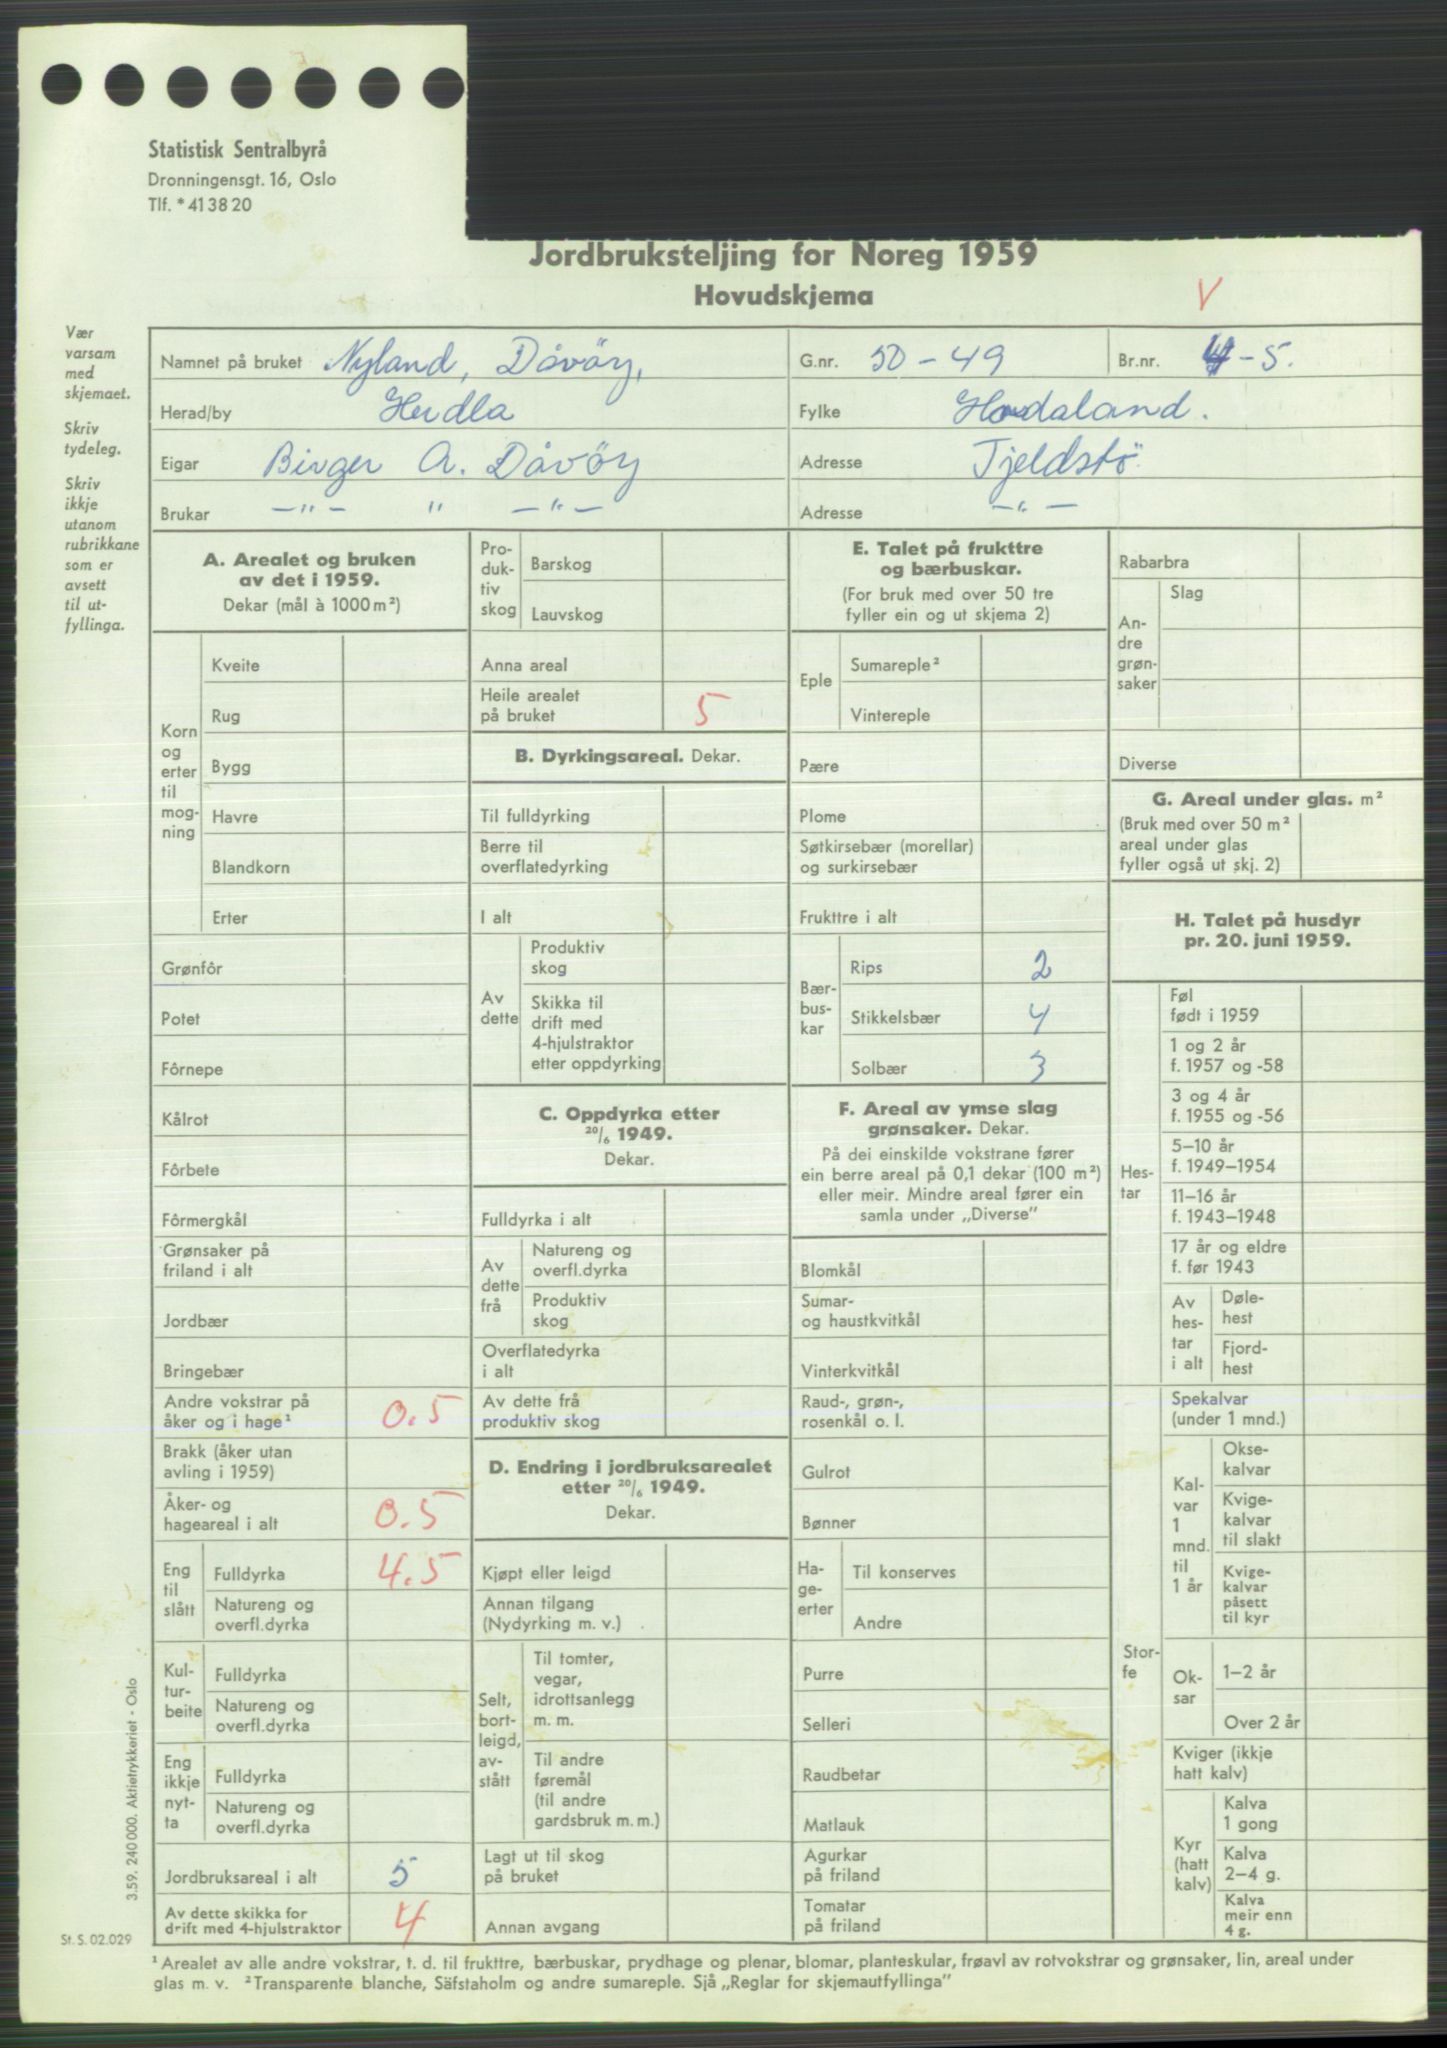 Statistisk Sentralbyrå
Dronningensgt. 16, Oslo
Tlf. * 41 38 20
Jordbruksteljing for Noreg 1959
Hovudskjema
V
Vær
varsam
med
skjemaet.
Skriv
tydeleg.
Skriv
ikkje
utanom
rubrikkane
som er
avsett
til ut-
fyllinga.
Namnet på bruket Nyland, Dåvöy, G.nr. 50-49 Br.nr. 4-5.
Herad/by Herdla Fylke Hordaland.
Eigar Birger A. Dåvöy Adresse Tjeldstö
Brukar -"- " -"- Adresse -"-
A. Arealet og bruken
av det i 1959.
Dekar (mål à 1000 m²)
Korn
og
erter
til
mog-
ning
Kveite
Rug
Bygg
Havre
Blandkorn
Erter
Grønfôr
Potet
Fôrnepe
Kålrot
Fôrbete
Fôrmergkål
Grønsaker på
friland i alt
Jordbær
Bringebær
Andre vokstrar på
åker og i hage¹ 0.5
Brakk (åker utan
avling i 1959)
Åker- og
hageareal i alt 0.5
Eng
til
slått
Fulldyrka 4.5
Natureng og
overfl.dyrka
Kul-
tur-
beite
Fulldyrka
Natureng og
overfl.dyrka
Eng
ikkje
nyt-
ta
Fulldyrka
Natureng og
overfl.dyrka
Jordbruksareal i alt 5
Av dette skikka for
drift med 4-hjulstraktor 4
Pro-
duk-
tiv
skog
Barskog
Lauvskog
Anna areal
Heile arealet
på bruket 5
B. Dyrkingsareal. Dekar.
Til fulldyrking
Berre til
overflatedyrking
I alt
Av
dette
Produktiv
skog
Skikka til
drift med
4-hjulstraktor
etter oppdyrking
C. Oppdyrka etter
20/6 1949.
Dekar.
Fulldyrka i alt
Av
dette
frå
Natureng og
overfl.dyrka
Produktiv
skog
Overflatedyrka
i alt
Av dette frå
produktiv skog
D. Endring i jordbruksarealet
etter 20/6 1949.
Dekar.
Kjøpt eller leigd
Annan tilgang
(Nydyrking m. v.)
Selt,
bort-
leigd,
av-
stått
Til tomter,
vegar,
idrottsanlegg
m. m.
Til andre
føremål
(til andre
gardsbruk m. m.)
Lagt ut til skog
på bruket
Annan avgang
E. Talet på frukttre
og bærbuskar.
(For bruk med over 50 tre
fyller ein og ut skjema 2)
Eple
Sumareple²
Vintereple
Pære
Plome
Søtkirsebær (morellar)
og surkirsebær
Frukttre i alt
Bær-
bus-
kar
Rips 2
Stikkelsbær 4
Solbær 3
F. Areal av ymse slag
grønsaker. Dekar.
På dei einskilde vokstrane fører
ein berre areal på 0,1 dekar (100 m²)
eller meir. Mindre areal fører ein
samla under „Diverse”
Blomkål
Sumar-
og haustkvitkål
Vinterkvitkål
Raud-, grøn-,
rosenkål o. l.
Gulrot
Bønner
Ha-
ge-
erter
Til konserves
Andre
Purre
Selleri
Raudbetar
Matlauk
Agurkar
på friland
Tomatar
på friland
Rabarbra
An-
dre
grøn-
saker
Slag
Diverse
G. Areal under glas. m²
(Bruk med over 50 m²
areal under glas
fyller også ut skj. 2)
H. Talet på husdyr
pr. 20. juni 1959.
Hes-
tar
Føl
født i 1959
1 og 2 år
f. 1957 og -58
3 og 4 år
f. 1955 og -56
5–10 år
f. 1949–1954
11–16 år
f. 1943–1948
17 år og eldre
f. før 1943
Av
hes-
tar
i alt
Døle-
hest
Fjord-
hest
Stor-
fe
Spekalvar
(under 1 mnd.)
Kal-
var
1
mnd.
til
1 år
Okse-
kalvar
Kvige-
kalvar
til slakt
Kvige-
kalvar
påsett
til kyr
Ok-
sar
1–2 år
Over 2 år
Kviger (ikkje
hatt kalv)
Kyr
(hatt
kalv)
Kalva
1 gong
Kalva
2–4 g.
Kalva
meir enn
4 g.
3.59. 240 000. Aktietrykkeriet - Oslo
St. S. 02.029
¹ Arealet av alle andre vokstrar, t. d. til frukttre, bærbuskar, prydhage og plenar, blomar, planteskular, frøavl av rotvokstrar og grønsaker, lin, areal under
glas m. v. ² Transparente blanche, Säfstaholm og andre sumareple. Sjå „Reglar for skjemautfyllinga”